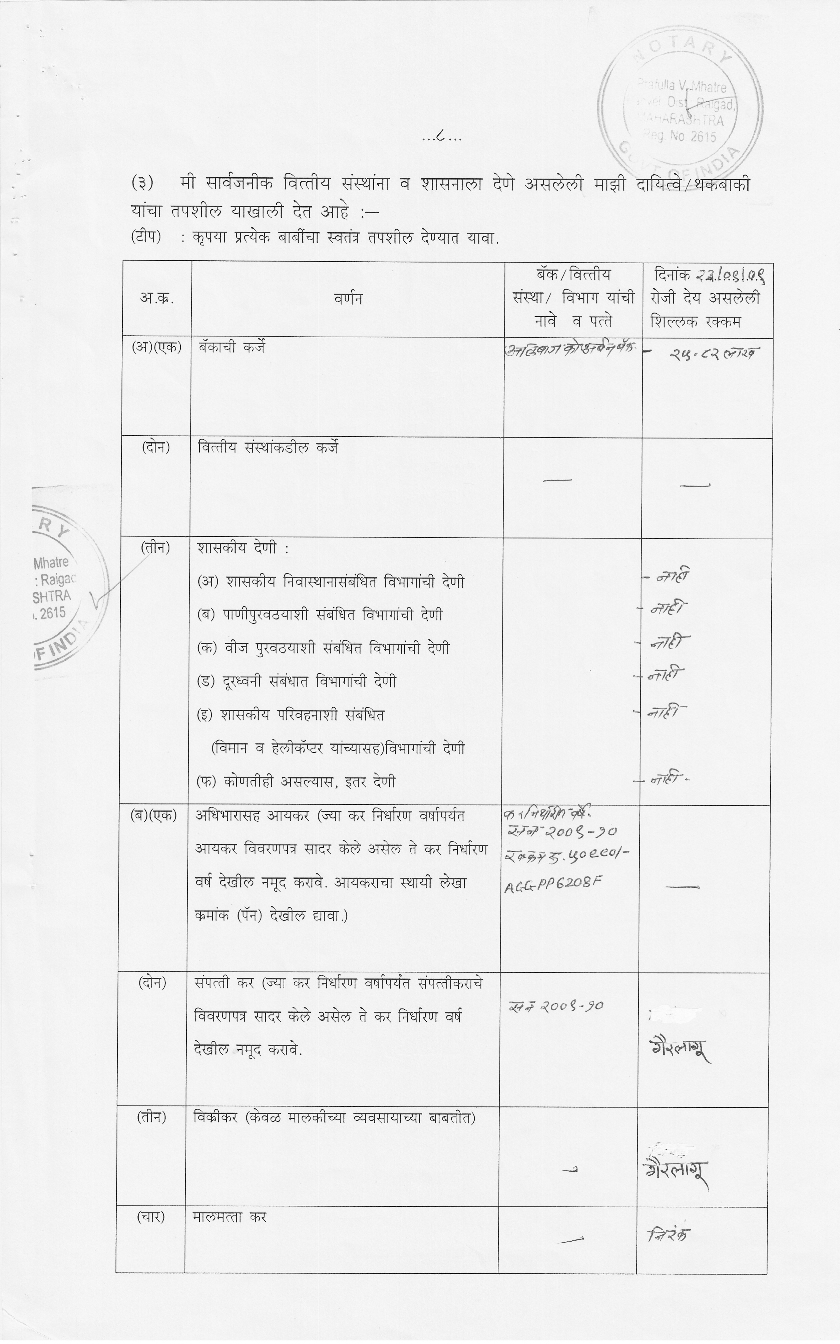 NOTARY
Prafulla V. Mhatre
Dist. Raigad.
MAHARASHTRA
Reg. No. 2615
GOVT OF INDIA
...८...
(३) मी सार्वजनीक वित्तीय संस्थांना व शासनाला देणे असलेली माझी दायित्वे/थकबाकी
यांचा तपशील याखाली देत आहे :—
(टीप) : कृपया प्रत्येक बाबींचा स्वतंत्र तपशील देण्यात यावा.
अ.क.
वर्णन
बॅक/वित्तीय
संस्था/ विभाग यांची
नावे व पत्ते
दिनांक
रोजी देय असलेली
शिल्लक रक्कम
(अ)(एक) बॅकाची कर्जे
- २५.८२ लाख
(दोन) वित्तीय संस्थांकडील कर्जे — —
(तीन) शासकीय देणी :
(अ) शासकीय निवास्थानासंबंधित विभागांची देणी - नाही
(ब) पाणीपुरवठयाशी संबंधित विभागांची देणी - नाही
(क) वीज पुरवठयाशी संबंधित विभागांची देणी - नाही
(ड) दूरध्वनी संबंधात विभागांची देणी - नाही
(इ) शासकीय परिवहनाशी संबंधित - नाही
(विमान व हेलीकॅप्टर यांच्यासह)विभागांची देणी
(फ) कोणतीही असल्यास, इतर देणी - नाही -
NOTARY
Mhatre
: Raigad
SHTRA
. 2615
OF INDIA
(ब)(एक) अधिभारासह आयकर (ज्या कर निर्धारण वर्षापर्यत
आयकर विवरणपत्र सादर केले असेल ते कर निर्धारण
वर्ष देखील नमूद करावे. आयकराचा स्थायी लेखा
क्रमांक (पॅन) देखील द्यावा.)
कर निर्धारण वर्ष.
सन २००९-१०
रक्कम रु.
AGGPP6208F
—
(दोन) संपत्ती कर (ज्या कर निर्धारण वर्षापर्यंत संपत्तीकराचे
विवरणपत्र सादर केले असेल ते कर निर्धारण वर्ष
देखील नमूद करावे.
सन २००९-१०
गैरलागू
(तीन) विक्रीकर (केवळ मालकीच्या व्यवसायाच्या बाबतीत)
— गैरलागू
(चार) मालमत्ता कर
— निरंक